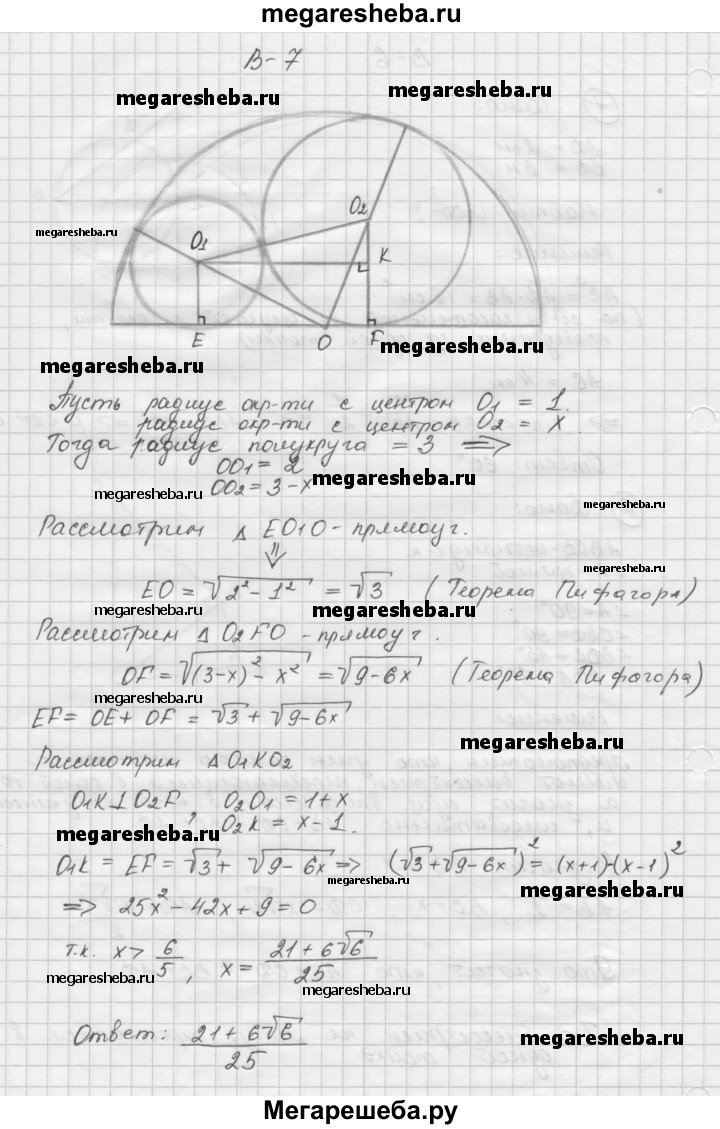 megaresheba.ru
В-7
megaresheba.ru
megaresheba.ru
O2
megaresheba.ru
O1
K
E
O
F
megaresheba.ru
megaresheba.ru
Пусть радиус окр-ти с центром O1 = 1.
радиус окр-ти с центром O2 = x
Тогда радиус полукруга = 3 =>
OO1 = 2
megaresheba.ru
OO2 = 3 - x
megaresheba.ru
Рассмотрим Δ EO1O - прямоуг.
megaresheba.ru
⇓
megaresheba.ru
EO = √(2² - 1²) = √3 (Теорема Пифагора)
megaresheba.ru
megaresheba.ru
Рассмотрим Δ O2FO - прямоуг.
OF = √((3-x)² - x²) = √(9-6x) (Теорема Пифагора)
megaresheba.ru
EF = OE + OF = √3 + √(9-6x)
megaresheba.ru
Рассмотрим Δ O1KO2
O1K ⊥ O2F, O2O1 = 1+x
O2K = x - 1.
megaresheba.ru
O1K = EF = √3 + √(9-6x) => (√3 + √(9-6x))² = (x+1)-(x-1)²
megaresheba.ru
megaresheba.ru
=> 25x² - 42x + 9 = 0
т.к. x > 6/5, x = (21 + 6√6)/25
megaresheba.ru
megaresheba.ru
Ответ: (21 + 6√6)/25
megaresheba.ru
Мегарешеба.ру